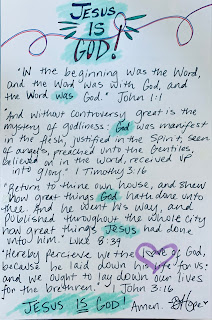 JESUS
IS
GOD!
"IN the beginning was the Word,
and the Word was with God, and
the Word was God." John 1:1
"And without controversy great is the
mystery of godliness: God was manifest
in the flesh, justified in the Spirit, seen
of angels, preached unto the Gentiles,
believed on in the world, received up
into glory." 1 Timothy 3:16
"Return to thine own house, and shew
how great things God hath done unto
thee. And he went his way, and
published throughout the whole city
how great things Jesus had done
unto him." Luke 8:39
"Hereby percieve we the love of God,
because he laid down his life for us:
and we ought to lay down our lives
for the brethren." 1 John 3:16
JESUS IS GOD! Amen.